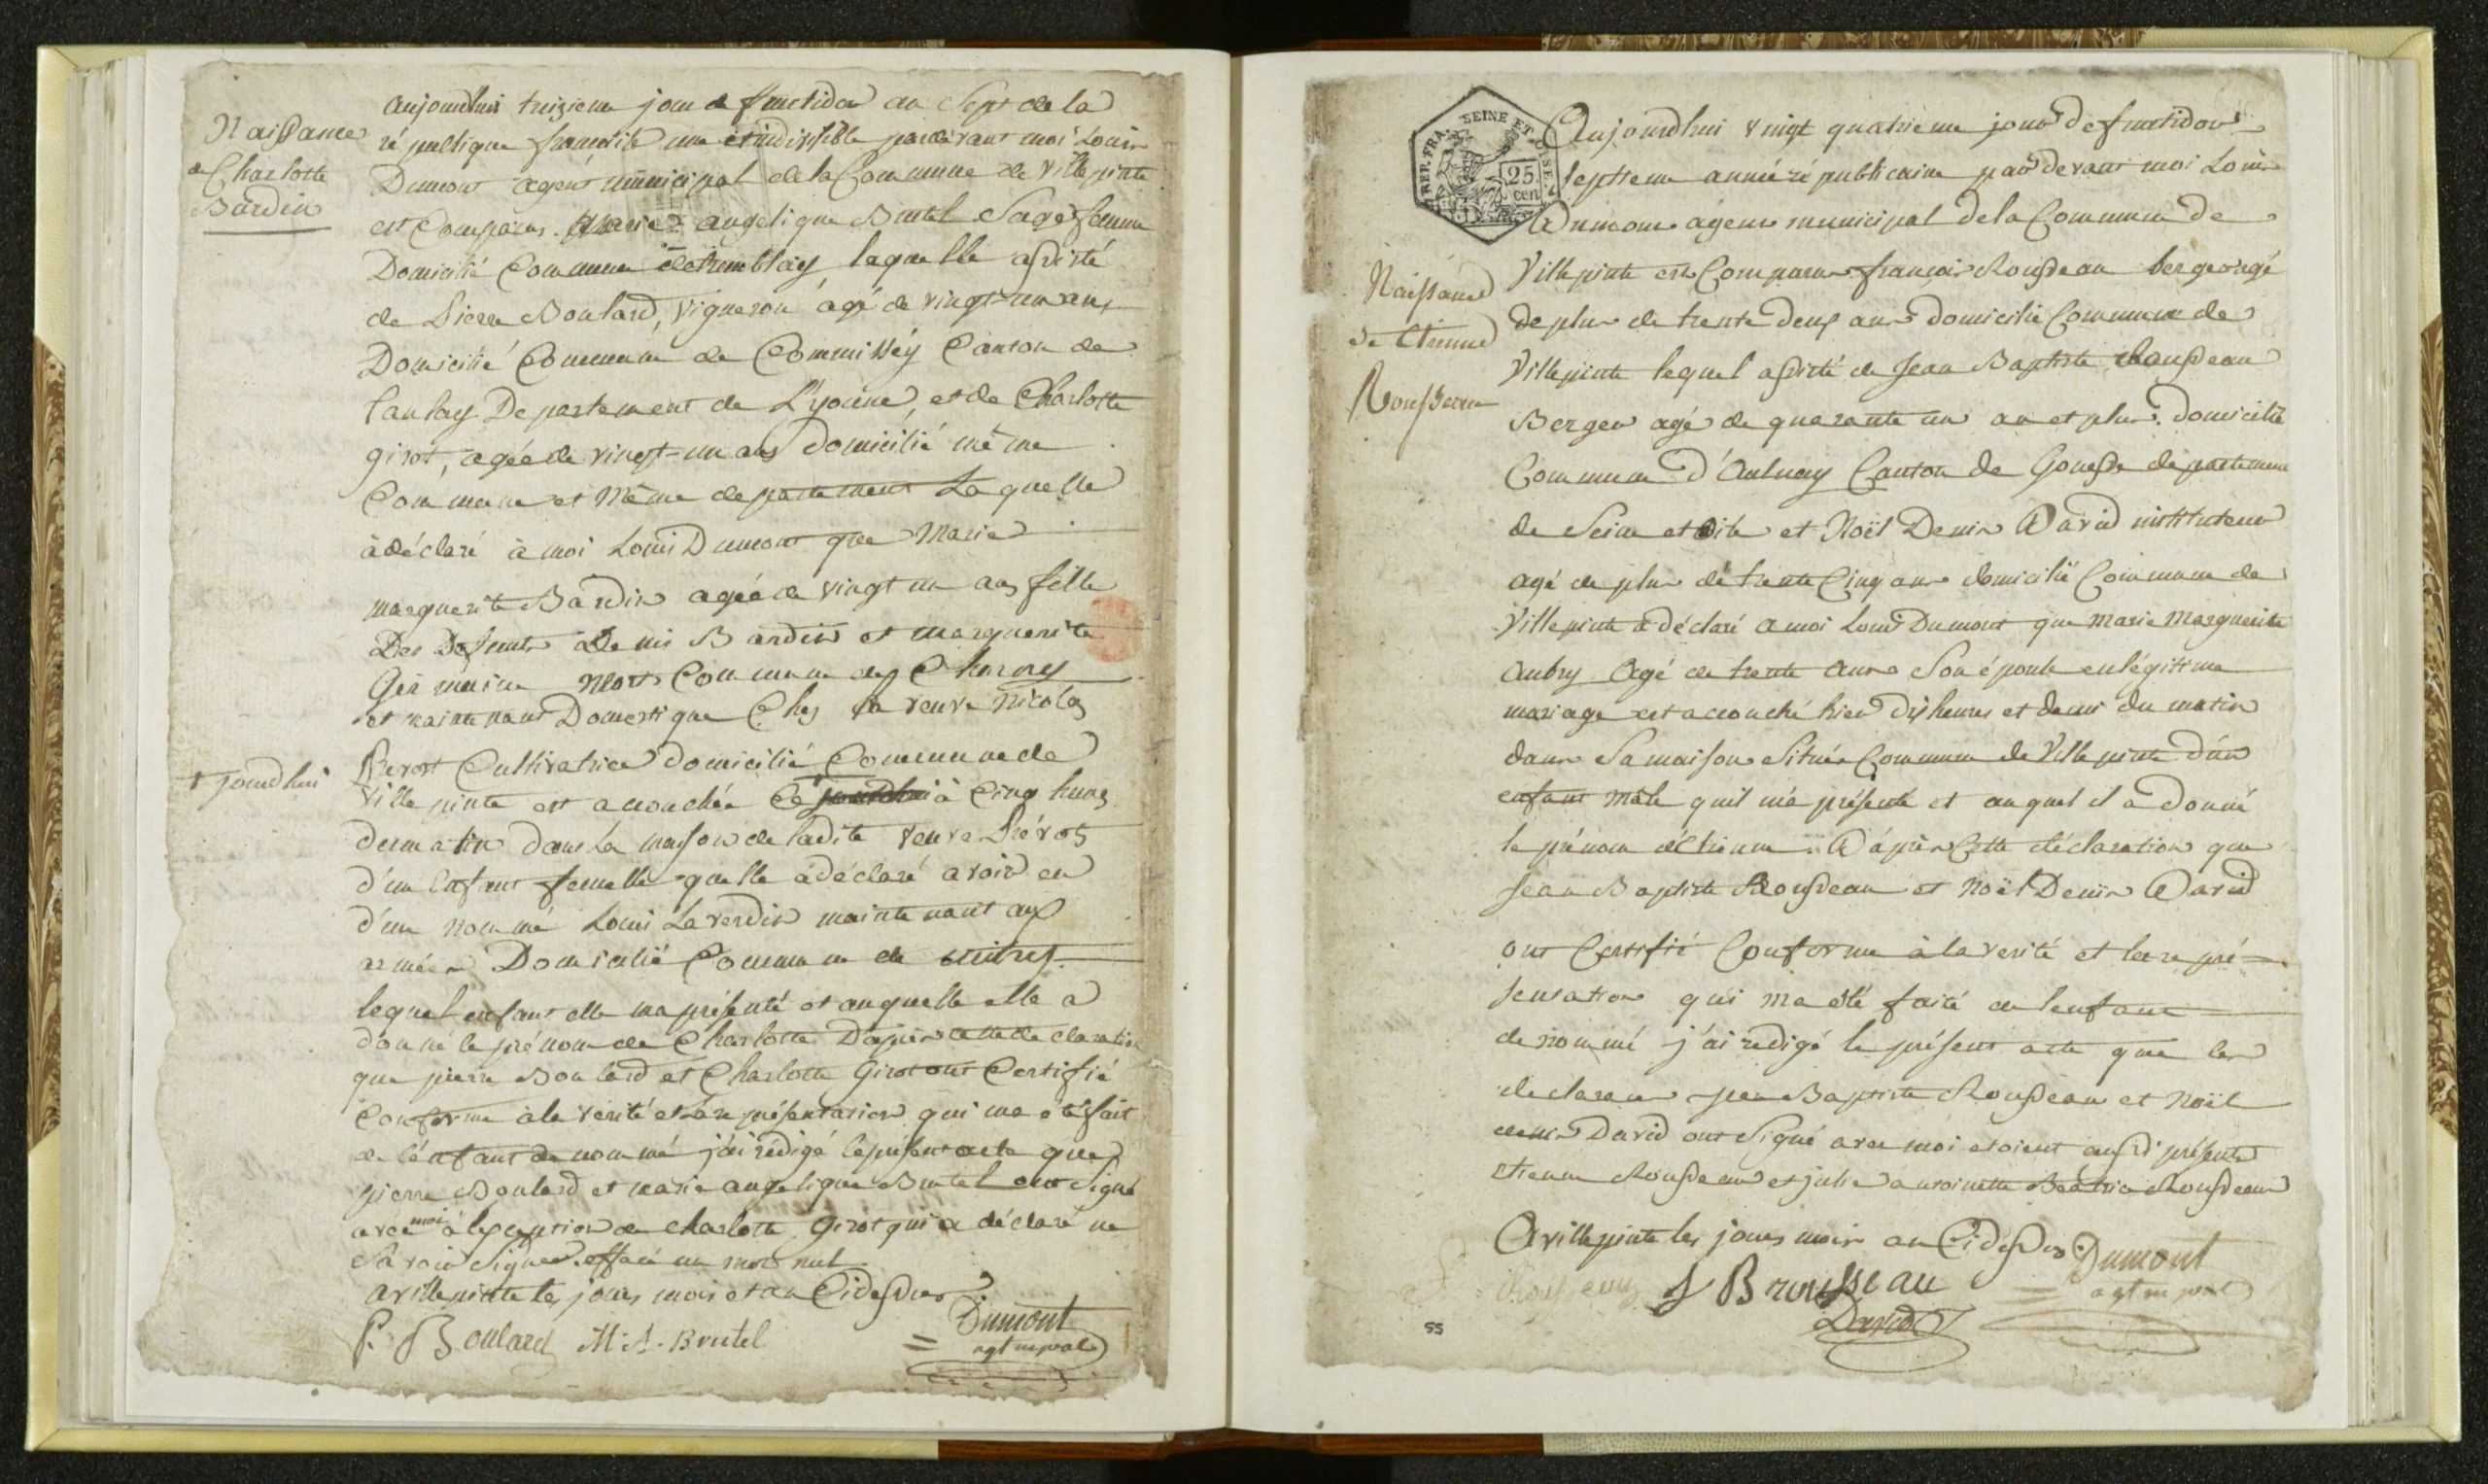 Naissance
de Charlotte
Bardin
aujourdhui treizieme jour de fructidor an Sept de la
république francaise une et indivisible pardevant moi Louis
Dumont agent municipal de la Commune de Villepinte
est Comparus Marie angelique Brutel Sage femme
Domicilié Commune de tremblay laquelle assisté
de Pierre Boulard, vigneron âgé de vingt-un ans
Domicilié Commune de Commissey Canton de
tanlay Departement de L'yonne, et de Charlotte
girot, agée de vingt-un ans domicilié même
Commune et même departement Laquelle
à déclaré à moi Louis Dumont que Marie
marguerite Bardin agée de vingt un ans fille
Des Defunts Denis Bardin et marguerite
Germaine morts Commune de Charny
et maintenant Domestique Chez la veuve Nicolas
Prevost Cultivatrice domicilié Commune de
+ jourdhui
Villepinte est accouchée Ce à Cinq heures
du matin dans la maison de ladite veuve Prévost
d'un Enfant femelle quelle à déclaré avoir eu
d'un nommé Louis Laverdin maintenant aux
armées Domicilié Commune de mitry
lequel enfant elle ma présenté et auquelle elle a
donné le prénom de Charlotte D'apres cette declaration
que pierre Boulard et Charlotte Girot ont Certifié
Conforme à la verité et la représentation qui ma été fait
de l'énfant denommé j'ai rédigé le présent acte que
pierre Boulard et marie angelique Brutel ont Signé
avec moi à l'exception de charlotte Girot qui a déclaré ne
Savoir Signer. effacé un mot nul
a villepinte les jours mois et an Cidessus
P. Boulard M. A. Brutel
Dumont
agt mpal
RÉP. FRA. SEINE ET OISE
25
cen
Aujourdhui vingt quatrieme jour de fructidor
septieme année républicaine pardevant moi Louis
Dumont agent municipal de la Commune de
Naissance
de Etienne
Rousseau
Villepinte est Comparu francois Rousseau berger agé
de plus de trente deux ans domicilié Commune de
Villepinte lequel assisté de Jean Baptiste Rousseau
Berger agé de quarante un an et plus domicilié
Commune d'Aulnay Canton de Gonesse departement
de Seine et Oise et Noël Denis David instituteur
agé de plus de trente Cinq ans domicilié Commune de
Villepinte a déclaré a moi Louis Dumont que marie Marguerite
Aubry Agé de trente ans Son épouse en légitime
mariage est accouché hier dix heures et demi du matin
dans Sa maison Située Commune de Villepinte d'un
enfant mâle quil ma présenté et auquel il a donné
le prénom d'Etienne D'aprés Cette déclaration que
Jean Baptiste Rousseau et Noël Denis David
ont Certifié Conforme à la verité et la repré=
sentation qui ma été faité de lenfant
denommé j'ai redigé le présent acte que les
declarans jean Baptiste Rousseau et Noël
denis David ont Signé avec moi etoient aussi présents
etienne Rousseau et julie antoinette Béatrice Rousseau
A villepinte les jours mois an Cidessus
Dumont
agt mpal
Rousseau J B rousseau
David
55